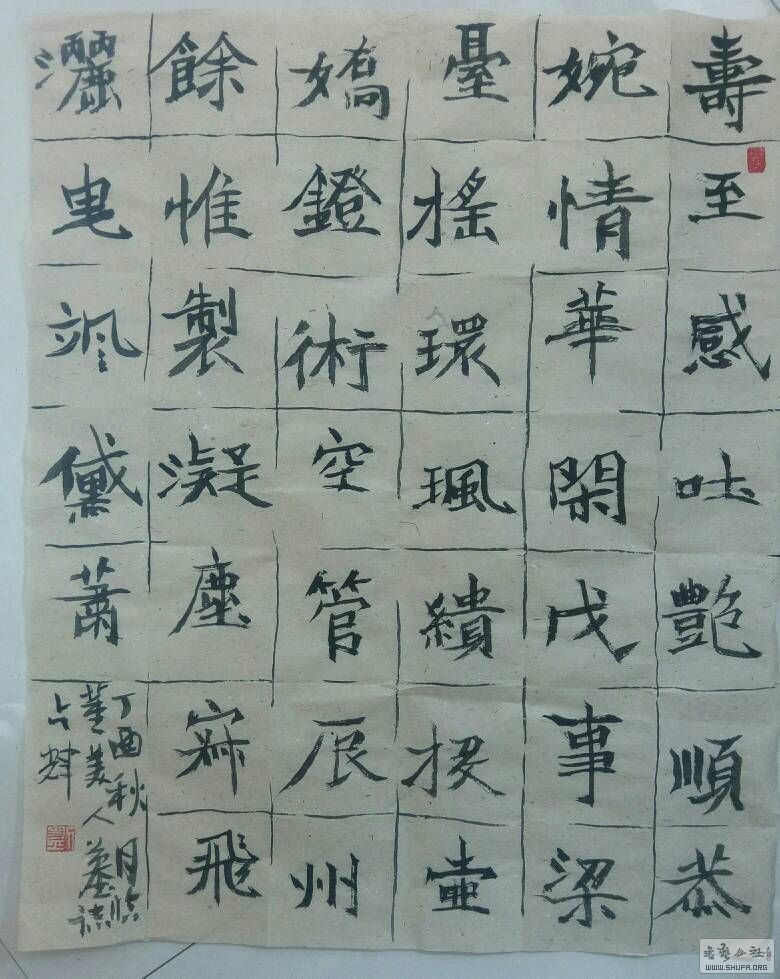 壽至感吐艷順恭
婉情華閑戊事梁
臺搖環珮繢投壺
嬌鐙術空管辰州
餘惟製凝塵寂飛
灑曳颯黛蕭
丁酉秋月臨
董美人墓誌
书艺公社
WWW.SHUFA.ORG